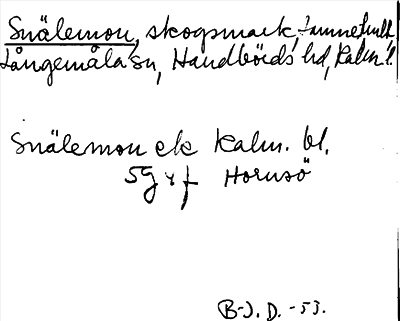 Snälemon, skogsmark, namnet
Långemåla sn, Handbörds hd, Kalm. l.
Snälemon ek Kalm. bl.
5g y f Hornsö
B-J. D. -53.